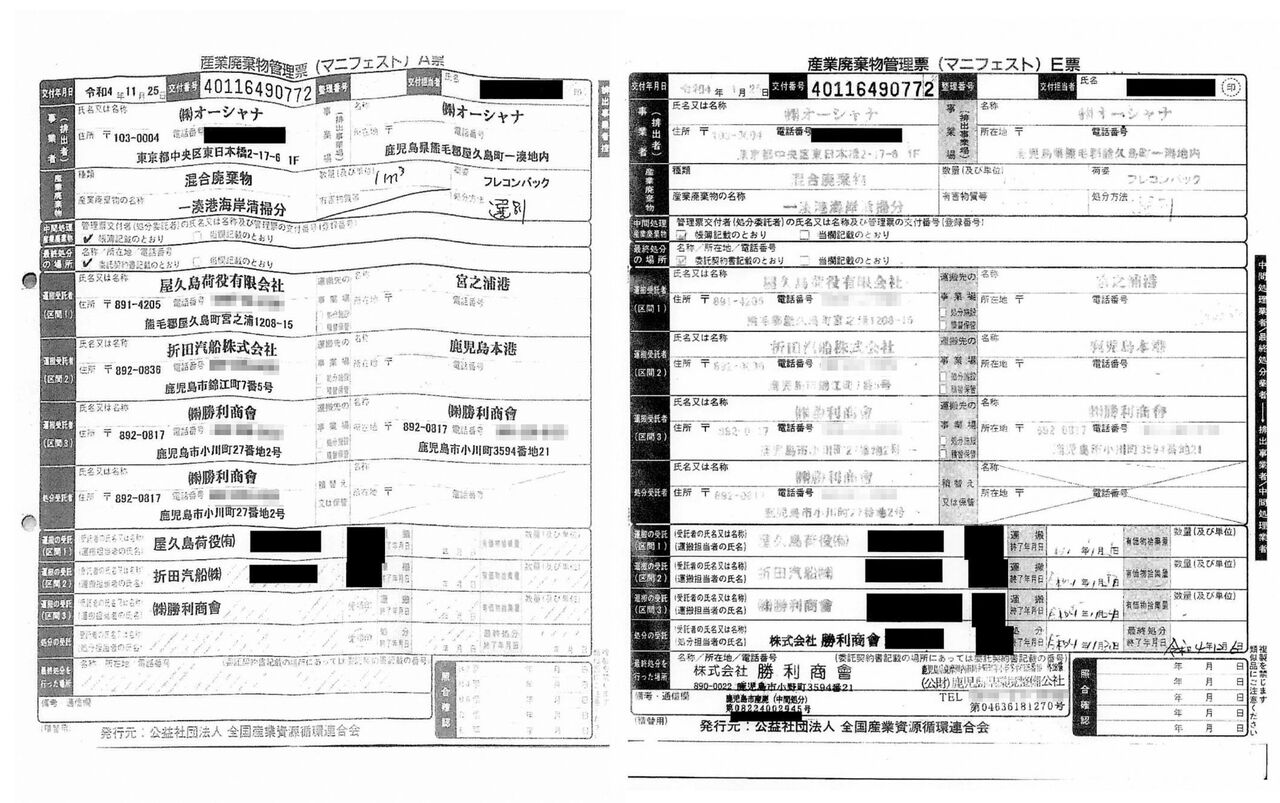 産業廃棄物管理票（マニフェスト）A票
交付年月日 令和4年11月25日 交付番号 40116490772 整理番号 交付担当者 氏名 印
事業者（排出者）
氏名又は名称
㈱オーシャナ
住所 〒103-0004 電話番号
東京都中央区東日本橋2-17-6 1F
事業場（排出事業場）
名称
㈱オーシャナ
所在地 〒 電話番号
鹿児島県熊毛郡屋久島町一湊地内
産業廃棄物
種類
混合廃棄物
数量(及び単位)
1m³
荷姿
フレコンバック
産業廃棄物の名称
一湊港海岸清掃分
有害物質等
処分方法
選別
中間処理産業廃棄物
管理票交付者(処分委託者)の氏名又は名称及び管理票の交付番号(登録番号)
✓帳簿記載のとおり □当欄記載のとおり
最終処分の場所
名称／所在地／電話番号
✓委託契約書記載のとおり □当欄記載のとおり
運搬受託者(区間1)
氏名又は名称
屋久島荷役有限会社
住所 〒891-4205 電話番号
熊毛郡屋久島町宮之浦1208-15
運搬先の事業場
□処分施設
□積替保管
名称
宮之浦港
所在地 〒 電話番号
運搬受託者(区間2)
氏名又は名称
折田汽船株式会社
住所 〒892-0836 電話番号
鹿児島市錦江町7番5号
運搬先の事業場
□処分施設
□積替保管
名称
鹿児島本港
所在地 〒 電話番号
運搬受託者(区間3)
氏名又は名称
㈱勝利商會
住所 〒892-0817 電話番号
鹿児島市小川町27番地2号
運搬先の事業場
□処分施設
□積替保管
名称
㈱勝利商會
所在地 〒892-0817 電話番号
鹿児島市小川町3594番地21
処分受託者
氏名又は名称
㈱勝利商會
住所 〒892-0817 電話番号
鹿児島市小川町27番地2号
積替え又は保管
名称
所在地 〒 電話番号
運搬の受託(区間1)
(受託者の氏名又は名称)
(運搬担当者の氏名)
屋久島荷役㈲
運搬終了年月日 年 月 日
有価物拾集量 数量(及び単位)
運搬の受託(区間2)
(受託者の氏名又は名称)
(運搬担当者の氏名)
折田汽船㈱
運搬終了年月日 年 月 日
有価物拾集量 数量(及び単位)
運搬の受託(区間3)
(受託者の氏名又は名称)
(運搬担当者の氏名)
㈱勝利商會
受領印
運搬終了年月日 年 月 日
有価物拾集量 数量(及び単位)
処分の受託
(受託者の氏名又は名称)
(処分担当者の氏名)
受領印
処分終了年月日 年 月 日
最終処分終了年月日 年 月 日
最終処分を行った場所
名称／所在地／電話番号 (委託契約書記載の場所にあっては委託契約書記載の番号)
備考・通信欄
照合確認
年 月 日
年 月 日
年 月 日
年 月 日
(積替用)
発行元：公益社団法人 全国産業資源循環連合会
産業廃棄物管理票（マニフェスト）E票
交付年月日 年 月25日 交付番号 40116490772 整理番号 交付担当者 氏名 印
事業者（排出者）
氏名又は名称
㈱オーシャナ
住所 〒103-0004 電話番号
東京都中央区東日本橋2-17-6 1F
事業場（排出事業場）
名称
㈱オーシャナ
所在地 〒 電話番号
鹿児島県熊毛郡屋久島町一湊地内
産業廃棄物
種類
混合廃棄物
数量(及び単位)
荷姿
フレコンバック
産業廃棄物の名称
一湊港海岸清掃分
有害物質等
処分方法
中間処理産業廃棄物
管理票交付者(処分委託者)の氏名又は名称及び管理票の交付番号(登録番号)
✓帳簿記載のとおり □当欄記載のとおり
最終処分の場所
名称／所在地／電話番号
✓委託契約書記載のとおり □当欄記載のとおり
運搬受託者(区間1)
氏名又は名称
屋久島荷役有限会社
住所 〒891-4205 電話番号
熊毛郡屋久島町宮之浦1208-15
運搬先の事業場
□処分施設
□積替保管
名称
宮之浦港
所在地 〒 電話番号
運搬受託者(区間2)
氏名又は名称
折田汽船株式会社
住所 〒 電話番号
鹿児島市錦江町7番5号
運搬先の事業場
□処分施設
□積替保管
名称
鹿児島本港
所在地 〒 電話番号
運搬受託者(区間3)
氏名又は名称
㈱勝利商會
住所 〒892-0817 電話番号
鹿児島市小川町27番地2号
運搬先の事業場
□処分施設
□積替保管
名称
㈱勝利商會
所在地 〒892-0817 電話番号
鹿児島市小川町3594番地21
処分受託者
氏名又は名称
㈱勝利商會
住所 〒892-0817 電話番号
鹿児島市小川町27番地2号
積替え又は保管
名称
所在地 〒 電話番号
運搬の受託(区間1)
(受託者の氏名又は名称)
(運搬担当者の氏名)
屋久島荷役㈲
運搬終了年月日
有価物拾集量 数量(及び単位)
運搬の受託(区間2)
(受託者の氏名又は名称)
(運搬担当者の氏名)
折田汽船㈱
運搬終了年月日
有価物拾集量 数量(及び単位)
運搬の受託(区間3)
(受託者の氏名又は名称)
(運搬担当者の氏名)
㈱勝利商會
運搬終了年月日
有価物拾集量 数量(及び単位)
処分の受託
(受託者の氏名又は名称)
(処分担当者の氏名)
株式会社 勝利商會
処分終了年月日
最終処分終了年月日 令和4年12月6日
最終処分を行った場所
名称／所在地／電話番号 (委託契約書記載の場所にあっては委託契約書記載の番号)
株式会社 勝利商會
890-0022 鹿児島市小野町3594番21
(公財)鹿児島県環境整備公社
TEL
備考・通信欄
鹿児島市産廃(中間処分)
第08224002945号
第04636181270号
照合確認
年 月 日
年 月 日
年 月 日
年 月 日
(積替用)
発行元：公益社団法人 全国産業資源循環連合会
中間処理業者(最終処分業者)→排出事業者(中間処理業者)
複製を禁じます
類似品にご注意ください